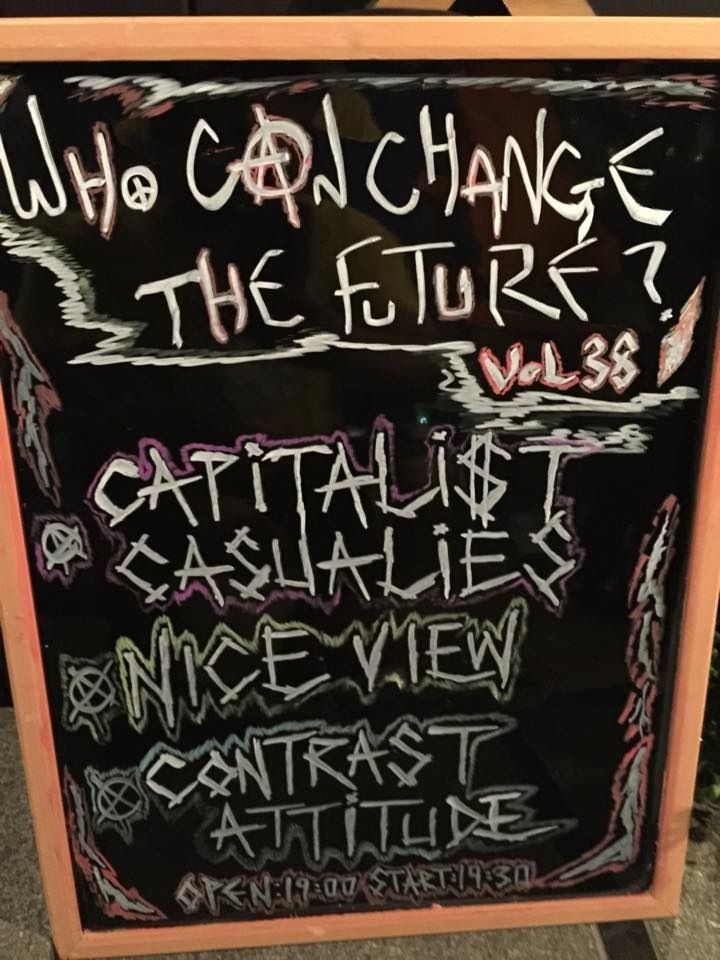 WHO CAN CHANGE
THE FUTURE?
VOL 38
CAPITALI$T
CASUALIES
NICE VIEW
CONTRAST
ATTITUDE
OPEN:19:00 START:19:30